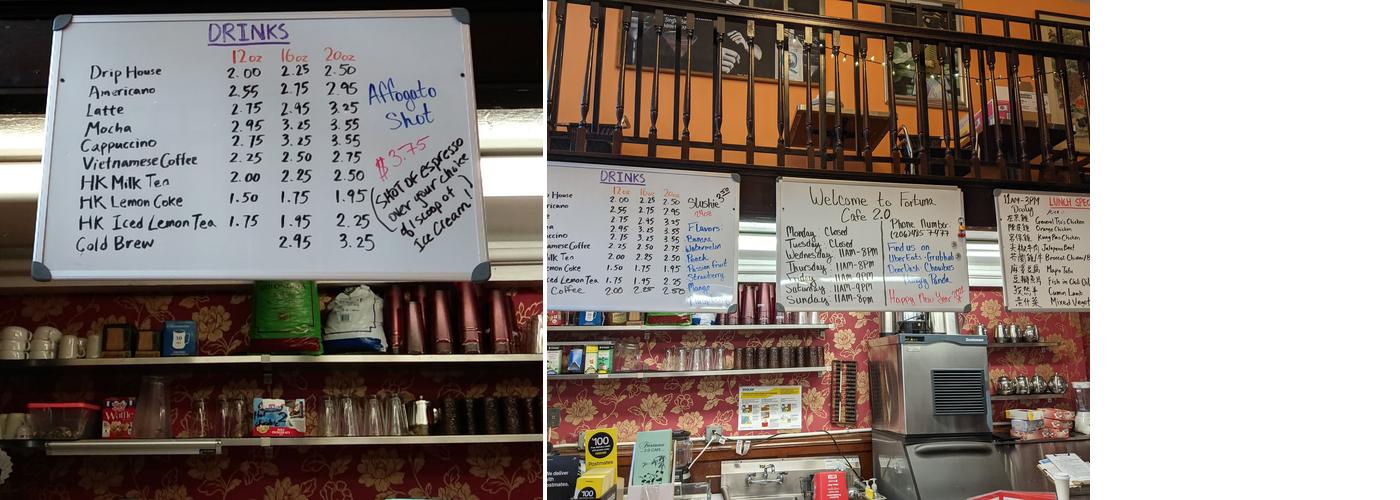 DRINKS
12oz 16oz 20oz
Drip House 2.00 2.25 2.50
Americano 2.55 2.75 2.95
Latte 2.75 2.95 3.25
Mocha 2.95 3.25 3.55
Cappuccino 2.75 3.25 3.55
Vietnamese Coffee 2.25 2.50 2.75
HK Milk Tea 2.00 2.25 2.50
HK Lemon Coke 1.50 1.75 1.95
HK Iced Lemon Tea 1.75 1.95 2.25
Cold Brew 2.95 3.25
Affogato
Shot
$3.75
(SHOT OF ESPRESSO
over your choice
of 1 scoop of
Ice Cream!)
Waffle
DRINKS
12oz 16oz 20oz
House 2.00 2.25 2.50
2.55 2.75 2.95
2.75 2.95 3.25
2.95 3.25 3.55
2.75 3.25 3.55
Coffee 2.25 2.50 2.75
Milk Tea 2.00 2.25 2.50
Coke 1.50 1.75 1.95
ced Lemon Tea 1.75 1.95 2.25
Coffee 2.00 2.25 2.50
Slushie
Flavors:
Banana
Watermelon
Peach
Passion fruit
Strawberry
Mango
Welcome to Fortuna
Cafe 2.0
Monday: Closed
Tuesday: Closed
Wednesday: 11AM-8PM
Thursday: 11AM-8PM
Friday: 11AM-9PM
Saturday: 11AM-9PM
Sunday: 11AM-8PM
Phone Number
Find us on
UberEats · Grubhub
DoorDash · Chowbus
Panda
Happy New Year
11AM-3PM LUNCH SPEC
Daily
General Tso's Chicken
Orange Chicken
Kung Pao Chicken
Jalapeno Beef
Broccoli Chicken/B
Mapo Tofu
Fish in Chili Oil
Cumin Lamb
Mixed Veget
$100
Postmates
We deliver
with
postmates.
Fortuna
$100